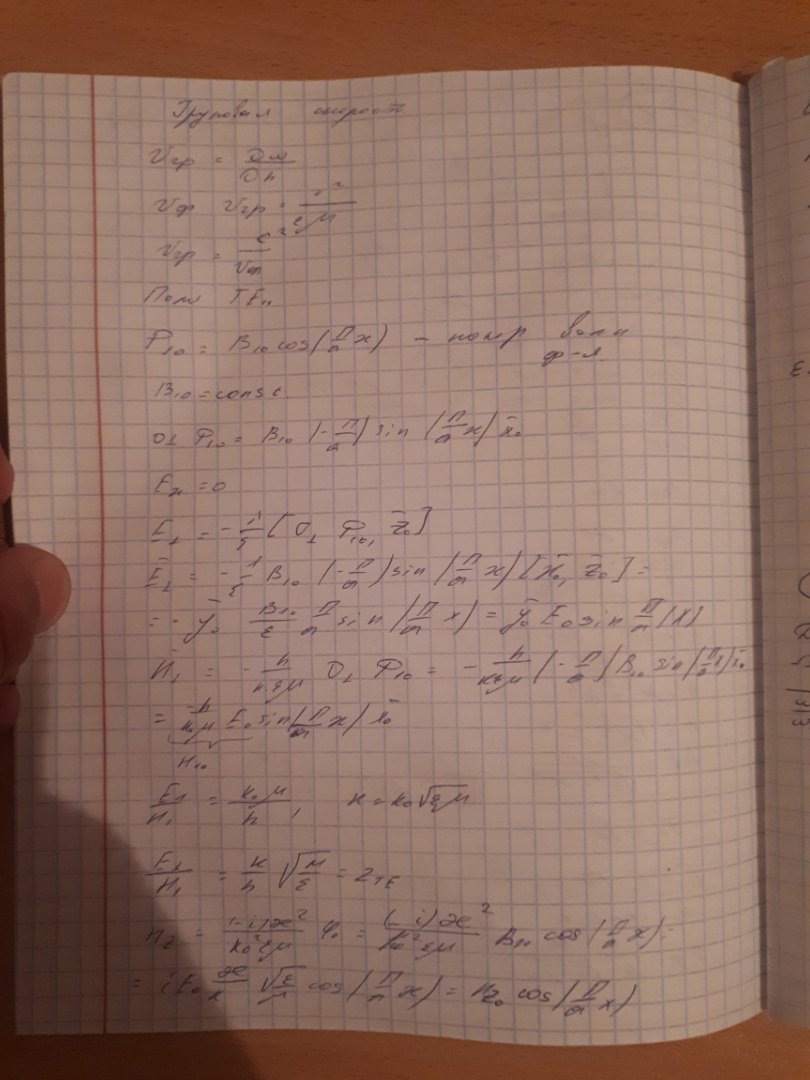 Груповая скорость
Vгр = ∂ω/∂h
Vф Vгр = c²/εμ
Vгр = c²/Vф
Поля TE₁₀
φ₁₀ = B₁₀ cos(π/a x) - ф-я
B₁₀ = const.
∇⊥ φ₁₀ = B₁₀ (-π/a) sin (π/a x) x̄₀
E⊥ = -1/ε [∇⊥ φ₁₀, z̄₀]
Ē⊥ = -1/ε B₁₀ (-π/a) sin (π/a x) [x̄₀, z̄₀] =
= - ȳ₀ B₁₀/ε π/a sin (π/a x) = ȳ₀ E₀ sin π/a (x)
H̄⊥ = - h/k₀εμ ∇⊥ φ₁₀ = - h/k₀εμ (-π/a) B₁₀ sin(π/a x) x̄₀
= -h/k₀μ E₀ sin(π/a x) x̄₀
H₁₀
E⊥/H⊥ = k₀μ/h, k = k₀√εμ
E⊥/H⊥ = k/h √μ/ε = Z TE
Hz = (-i)æ²/k₀²εμ φ₀ = (-i)æ²/k₀²εμ B₁₀ cos (π/a x) =
= i E₀ æ/k √ε/μ cos (π/a x) = Hz₀ cos (π/a x)